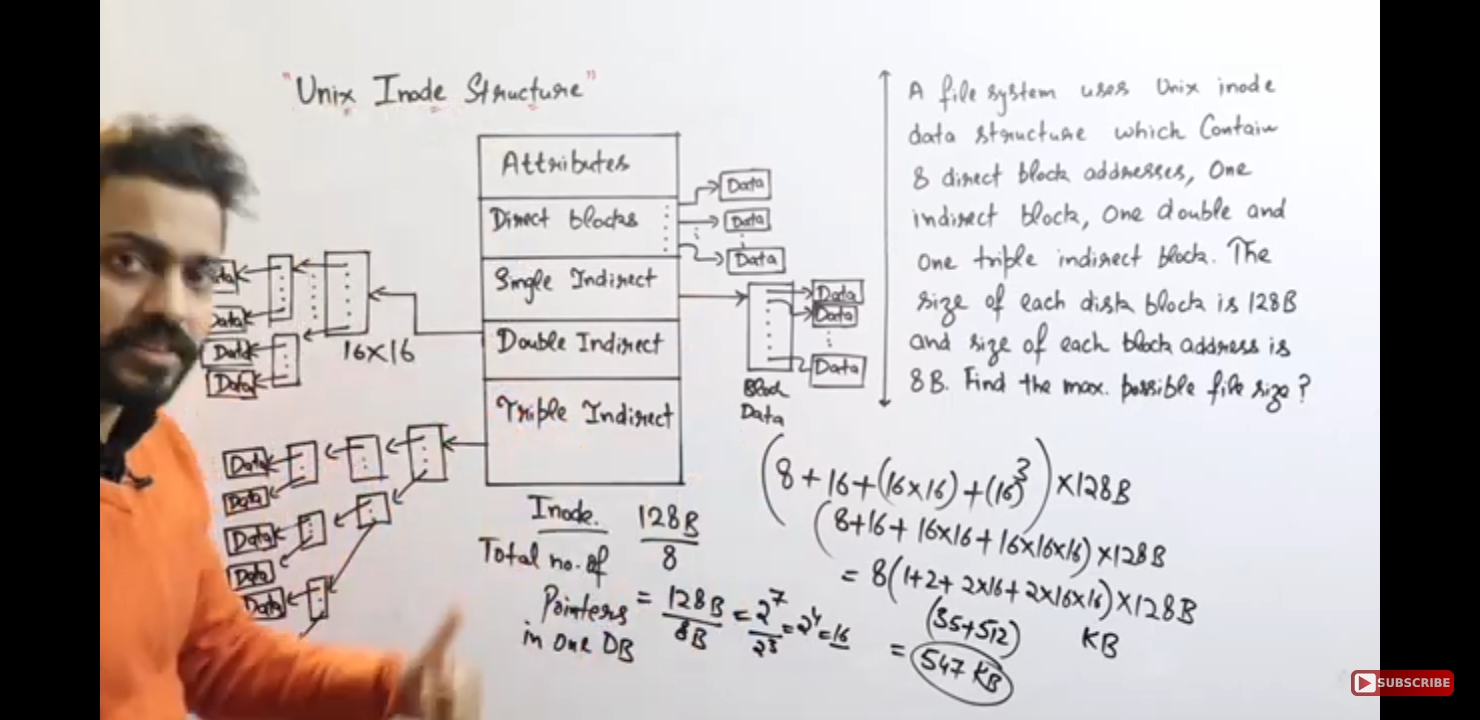 "Unix Inode Structure"
Attributes
Direct blocks
Single Indirect
Double Indirect
Triple Indirect
Data
Data
Data
Data
Data
Data
Block
Data
Data
Data
Data
16×16
Data
Data
Data
Data
Data
Inode.
128B
8
Total no. of
Pointers = 128B = 2^7 = 2^4 = 16
8B 2^3
in one DB
A file system uses Unix inode
data structure which Contain
8 direct block addresses, One
indirect block, One double and
One triple indirect block. The
size of each disk block is 128B
and size of each block address is
8B. Find the max. possible file size?
(8+16+(16×16)+(16)^3)×128B
(8+16+16×16+16×16×16)×128B
= 8(1+2+2×16+2×16×16)×128B
(35+512) KB
= 547 KB
SUBSCRIBE